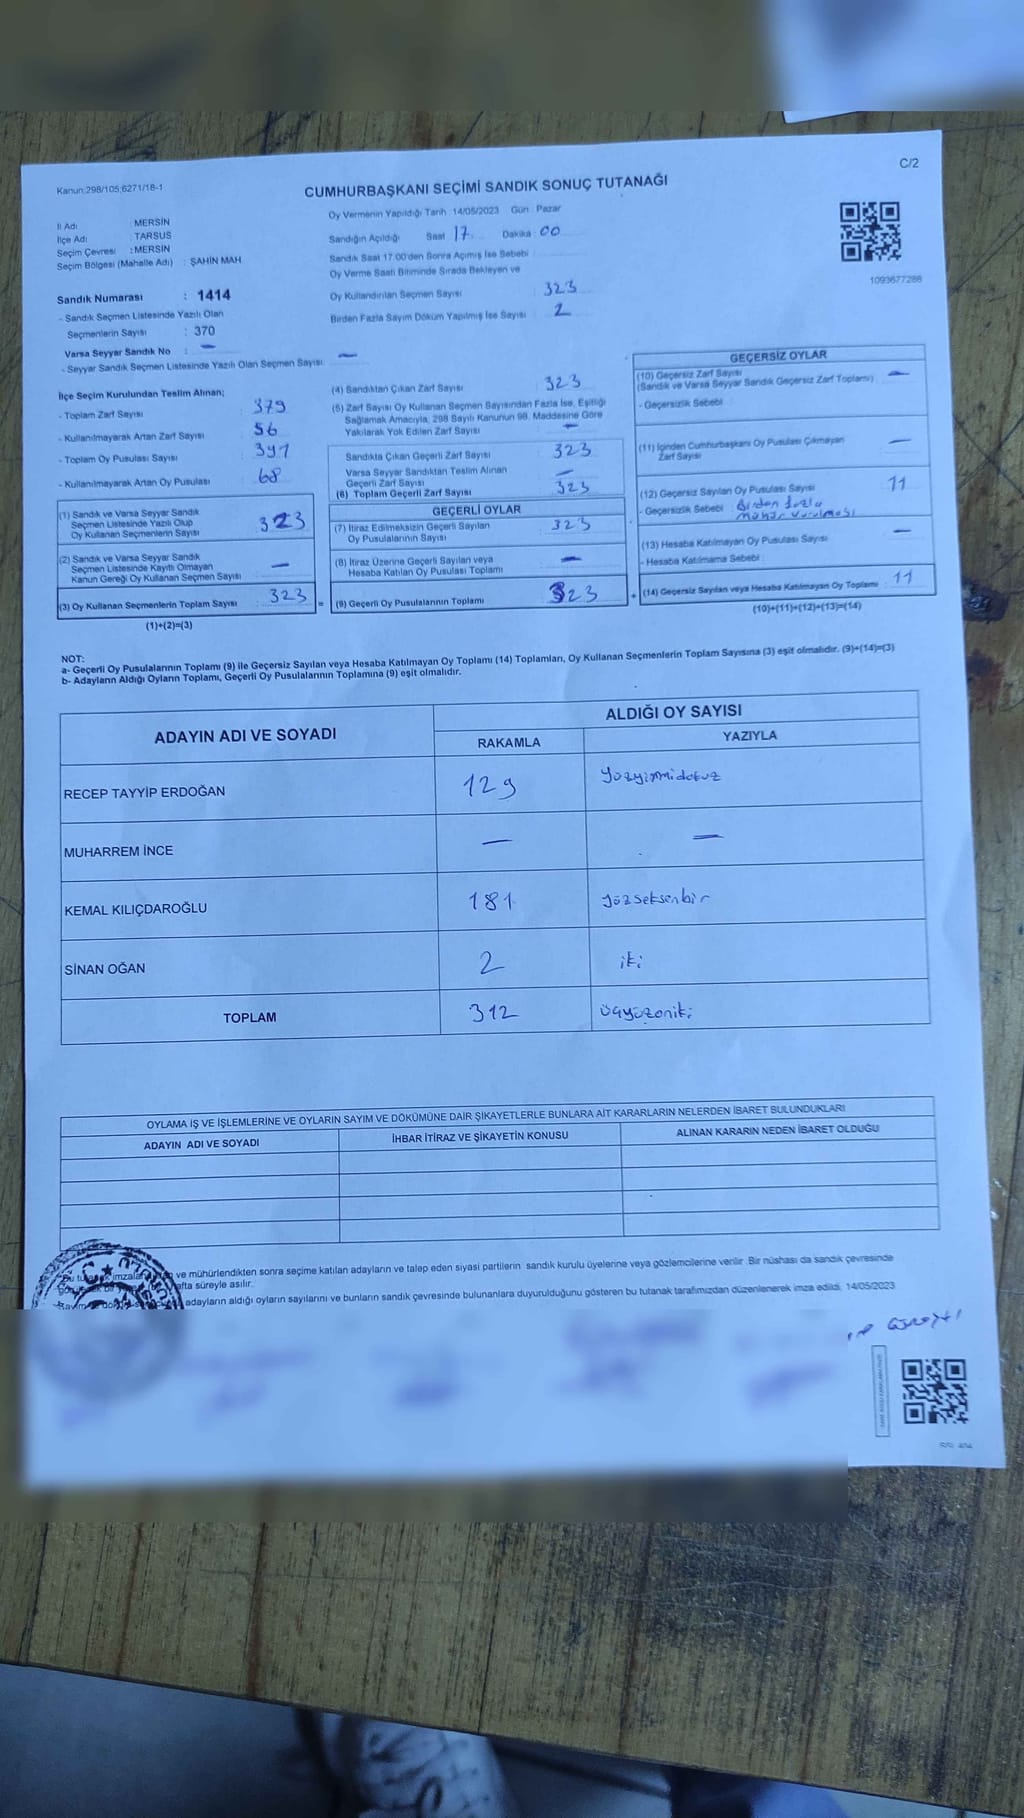 C/2
Kanun:298/105,6271/18-1
CUMHURBAŞKANI SEÇİMİ SANDIK SONUÇ TUTANAĞI
İl Adı : MERSİN
İlçe Adı : TARSUS
Seçim Çevresi : MERSİN
Seçim Bölgesi (Mahalle Adı) : ŞAHİN MAH
Sandık Numarası : 1414
- Sandık Seçmen Listesinde Yazılı Olan
Seçmenlerin Sayısı : 370
Varsa Seyyar Sandık No : —
- Seyyar Sandık Seçmen Listesinde Yazılı Olan Seçmen Sayısı: —
Oy Vermenin Yapıldığı Tarih 14/05/2023 Gün : Pazar
Sandığın Açıldığı Saat 17 Dakika : 00
Sandık Saat 17.00'den Sonra Açımış İse Sebebi
Oy Verme Saati Bitiminde Sırada Bekleyen ve
Oy Kullandırılan Seçmen Sayısı : 323
Birden Fazla Sayım Döküm Yapılmış İse Sayısı : 2
1093677288
İlçe Seçim Kurulundan Teslim Alınan;
- Toplam Zarf Sayısı : 379
- Kullanılmayarak Artan Zarf Sayısı : 56
- Toplam Oy Pusulası Sayısı : 391
- Kullanılmayarak Artan Oy Pusulası : 68
(1) Sandık ve Varsa Seyyar Sandık
Seçmen Listesinde Yazılı Olup
Oy Kullanan Seçmenlerin Sayısı : 323
(2) Sandık ve Varsa Seyyar Sandık
Seçmen Listesinde Kayıtlı Olmayan
Kanun Gereği Oy Kullanan Seçmen Sayısı : —
(3) Oy Kullanan Seçmenlerin Toplam Sayısı : 323 =
(1)+(2)=(3)
(4) Sandıktan Çıkan Zarf Sayısı : 323
(5) Zarf Sayısı Oy Kullanan Seçmen Sayısından Fazla İse, Eşitliği
Sağlamak Amacıyla, 298 Sayılı Kanunun 98. Maddesine Göre
Yakılarak Yok Edilen Zarf Sayısı : —
Sandıkta Çıkan Geçerli Zarf Sayısı : 323
Varsa Seyyar Sandıktan Teslim Alınan
Geçerli Zarf Sayısı : —
(6) Toplam Geçerli Zarf Sayısı : 323
GEÇERLİ OYLAR
(7) İtiraz Edilmeksizin Geçerli Sayılan
Oy Pusulalarının Sayısı : 323
(8) İtiraz Üzerine Geçerli Sayılan veya
Hesaba Katılan Oy Pusulası Toplamı : —
(9) Geçerli Oy Pusulalarının Toplamı : 323 +
GEÇERSİZ OYLAR
(10) Geçersiz Zarf Sayısı : —
(Sandık ve Varsa Seyyar Sandık Geçersiz Zarf Toplamı)
- Geçersizlik Sebebi :
(11) İçinden Cumhurbaşkanı Oy Pusulası Çıkmayan
Zarf Sayısı : —
(12) Geçersiz Sayılan Oy Pusulası Sayısı : 11
- Geçersizlik Sebebi : Birden fazla
mühür vurulması
(13) Hesaba Katılmayan Oy Pusulası Sayısı : —
- Hesaba Katılmama Sebebi :
(14) Geçersiz Sayılan veya Hesaba Katılmayan Oy Toplamı : 11
(10)+(11)+(12)+(13)=(14)
NOT:
a- Geçerli Oy Pusulalarının Toplamı (9) ile Geçersiz Sayılan veya Hesaba Katılmayan Oy Toplamı (14) Toplamları, Oy Kullanan Seçmenlerin Toplam Sayısına (3) eşit olmalıdır. (9)+(14)=(3)
b- Adayların Aldığı Oyların Toplamı, Geçerli Oy Pusulalarının Toplamına (9) eşit olmalıdır.
ADAYIN ADI VE SOYADI
ALDIĞI OY SAYISI
RAKAMLA YAZIYLA
RECEP TAYYİP ERDOĞAN 129 yüzyirmidokuz
MUHARREM İNCE — —
KEMAL KILIÇDAROĞLU 181 yüzseksenbir
SİNAN OĞAN 2 iki
TOPLAM 312 üçyüzoniki
OYLAMA İŞ VE İŞLEMLERİNE VE OYLARIN SAYIM VE DÖKÜMÜNE DAİR ŞİKAYETLERLE BUNLARA AİT KARARLARIN NELERDEN İBARET BULUNDUKLARI
ADAYIN ADI VE SOYADI İHBAR İTİRAZ VE ŞİKAYETİN KONUSU ALINAN KARARIN NEDEN İBARET OLDUĞU
ve mühürlendikten sonra seçime katılan adayların ve talep eden siyasi partilerin sandık kurulu üyelerine veya gözlemcilerine verilir. Bir nüshası da sandık çevresinde
süreyle asılır.
adayların aldığı oyların sayılarını ve bunların sandık çevresinde bulunanlara duyurulduğunu gösteren bu tutanak tarafımızdan düzenlenerek imza edildi. 14/05/2023